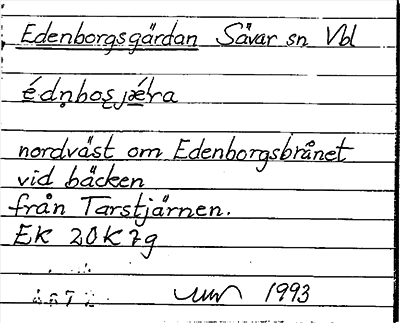 Edenborgsgärdan Sävar sn Vbl
nordväst om Edenborgsbrånet
vid bäcken
från Tarstjärnen.
EK 20K7g
1993